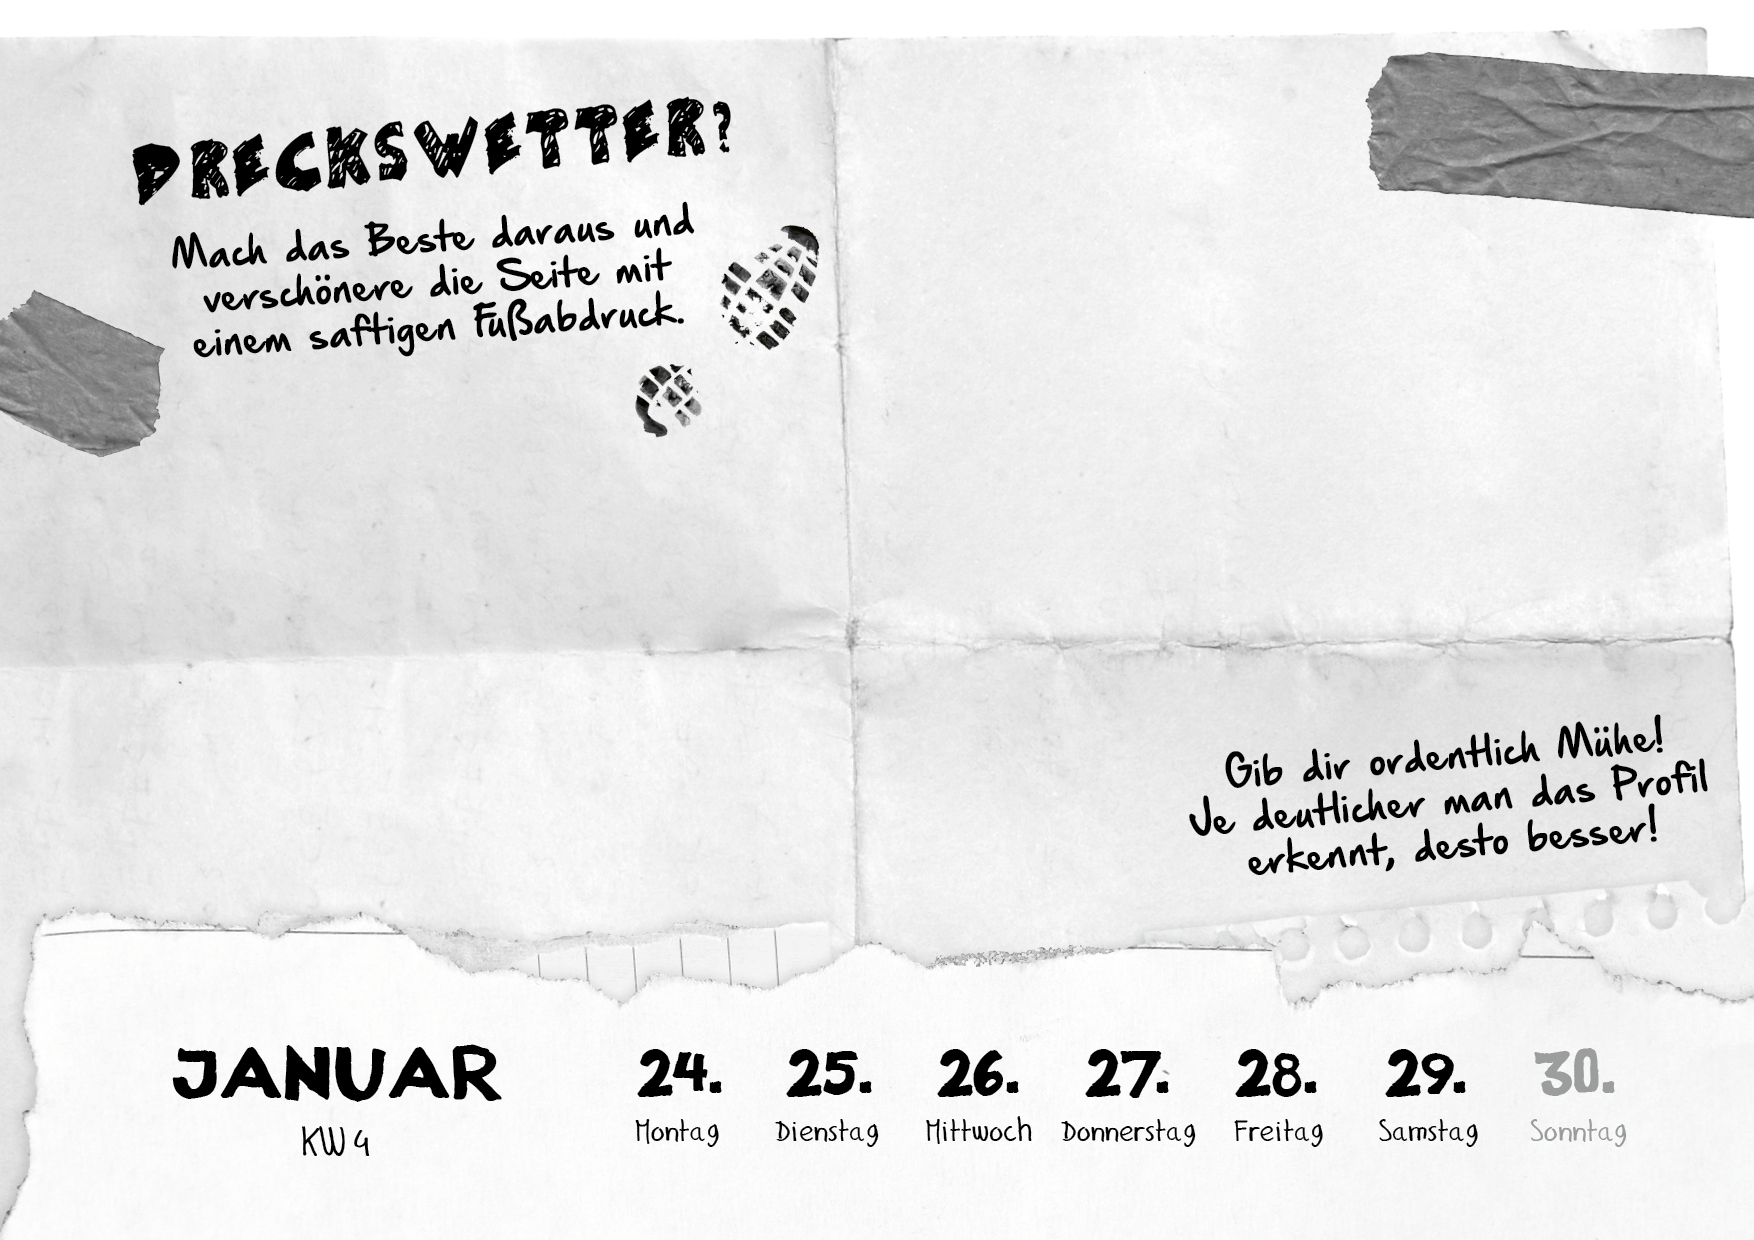 DRECKSWETTER?
Mach das Beste daraus und
verschönere die Seite mit
einem saftigen Fußabdruck.
Gib dir ordentlich Mühe!
Je deutlicher man das Profil
erkennt, desto besser!
JANUAR
KW 4
24. 25. 26. 27. 28. 29. 30.
Montag Dienstag Mittwoch Donnerstag Freitag Samstag Sonntag